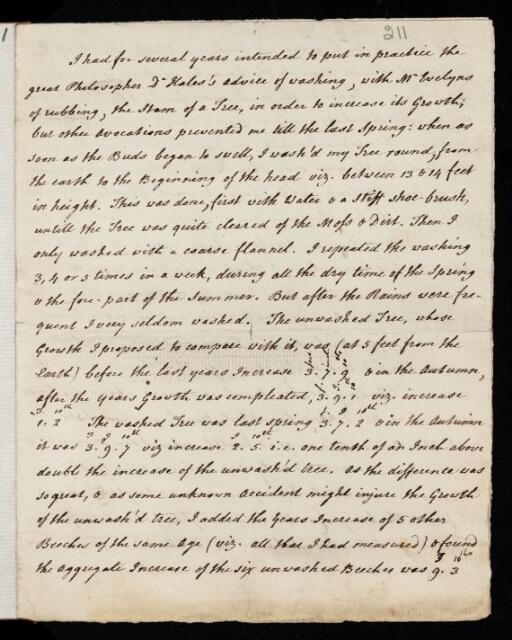 211
I had for several years intended to put in practice the
great Philosopher Dr Hales's advice of washing, with Mr Evelyns
of rubbing, the Stam of a Tree, in order to increase its Growth;
but other avocations prevented me till the last Spring: when as
soon as the Buds began to swell, I wash'd my Tree round, from
the earth to the Beginning of the head viz. between 13 & 14 feet
in height. This was done, first with Water & a Stiff shoe-brush,
untill the Tree was quite cleared of the Moss & Dirt. Then I
only washed with a coarse flannel. I repeated the washing
3, 4 or 5 times in a week, during all the dry time of the Spring
& the fore-part of the Summer. But after the Rains were fre-
quent I very seldom washed. The unwashed Tree, whose
Growth I proposed to compare with it, was (at 5 feet from the
Earth) before the last years Increase 3. 7. 9 & in the Autumn,
after the years Growth was compleated, 3. 9. 1 viz. increase
1. 2 The washed Tree was last spring 3. 7. 2 & in the Autumn
it was 3. 9. 7 viz increase 2. 5. i.e. one tenth of an Inch above
double the increase of the unwash'd tree. As the difference was
so great, & as some unknown accident might injure the Growth
of the unwash'd tree, I added the Years Increase of 5 other
Beeches of the same Age (viz. all that I had measured) & found
the aggregate Increase of the six unwashed Beeches was 9. 3